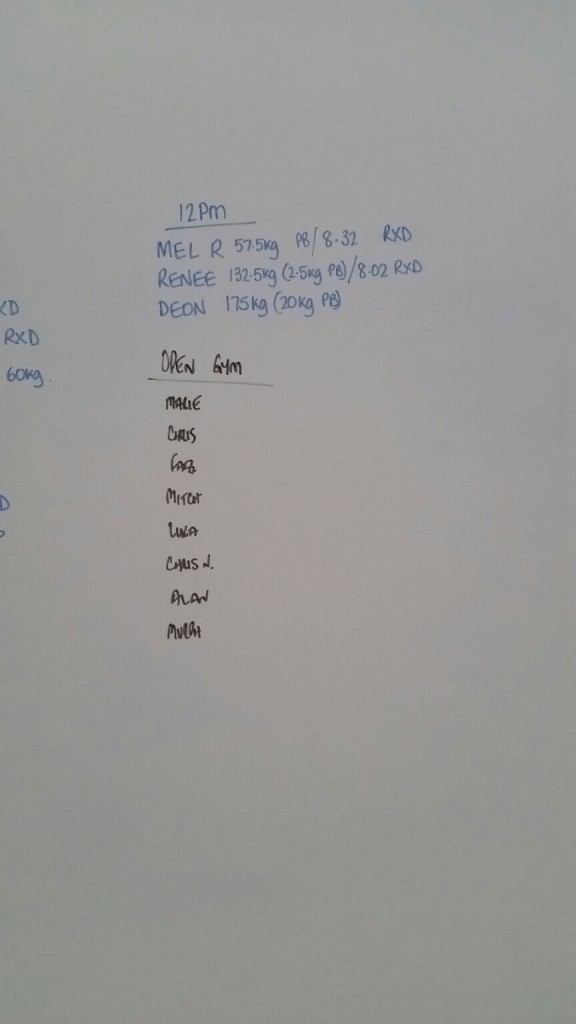 12PM
MEL R 57.5kg PB/8.32 RXD
RENEE 132.5kg (2.5kg PB)/8.02 RXD
DEON 175kg (20kg PB)
RXD
60kg.
OPEN GYM
MARIE
CHRIS
MITCH
LUKA
CHRIS
ALAN
MURPH